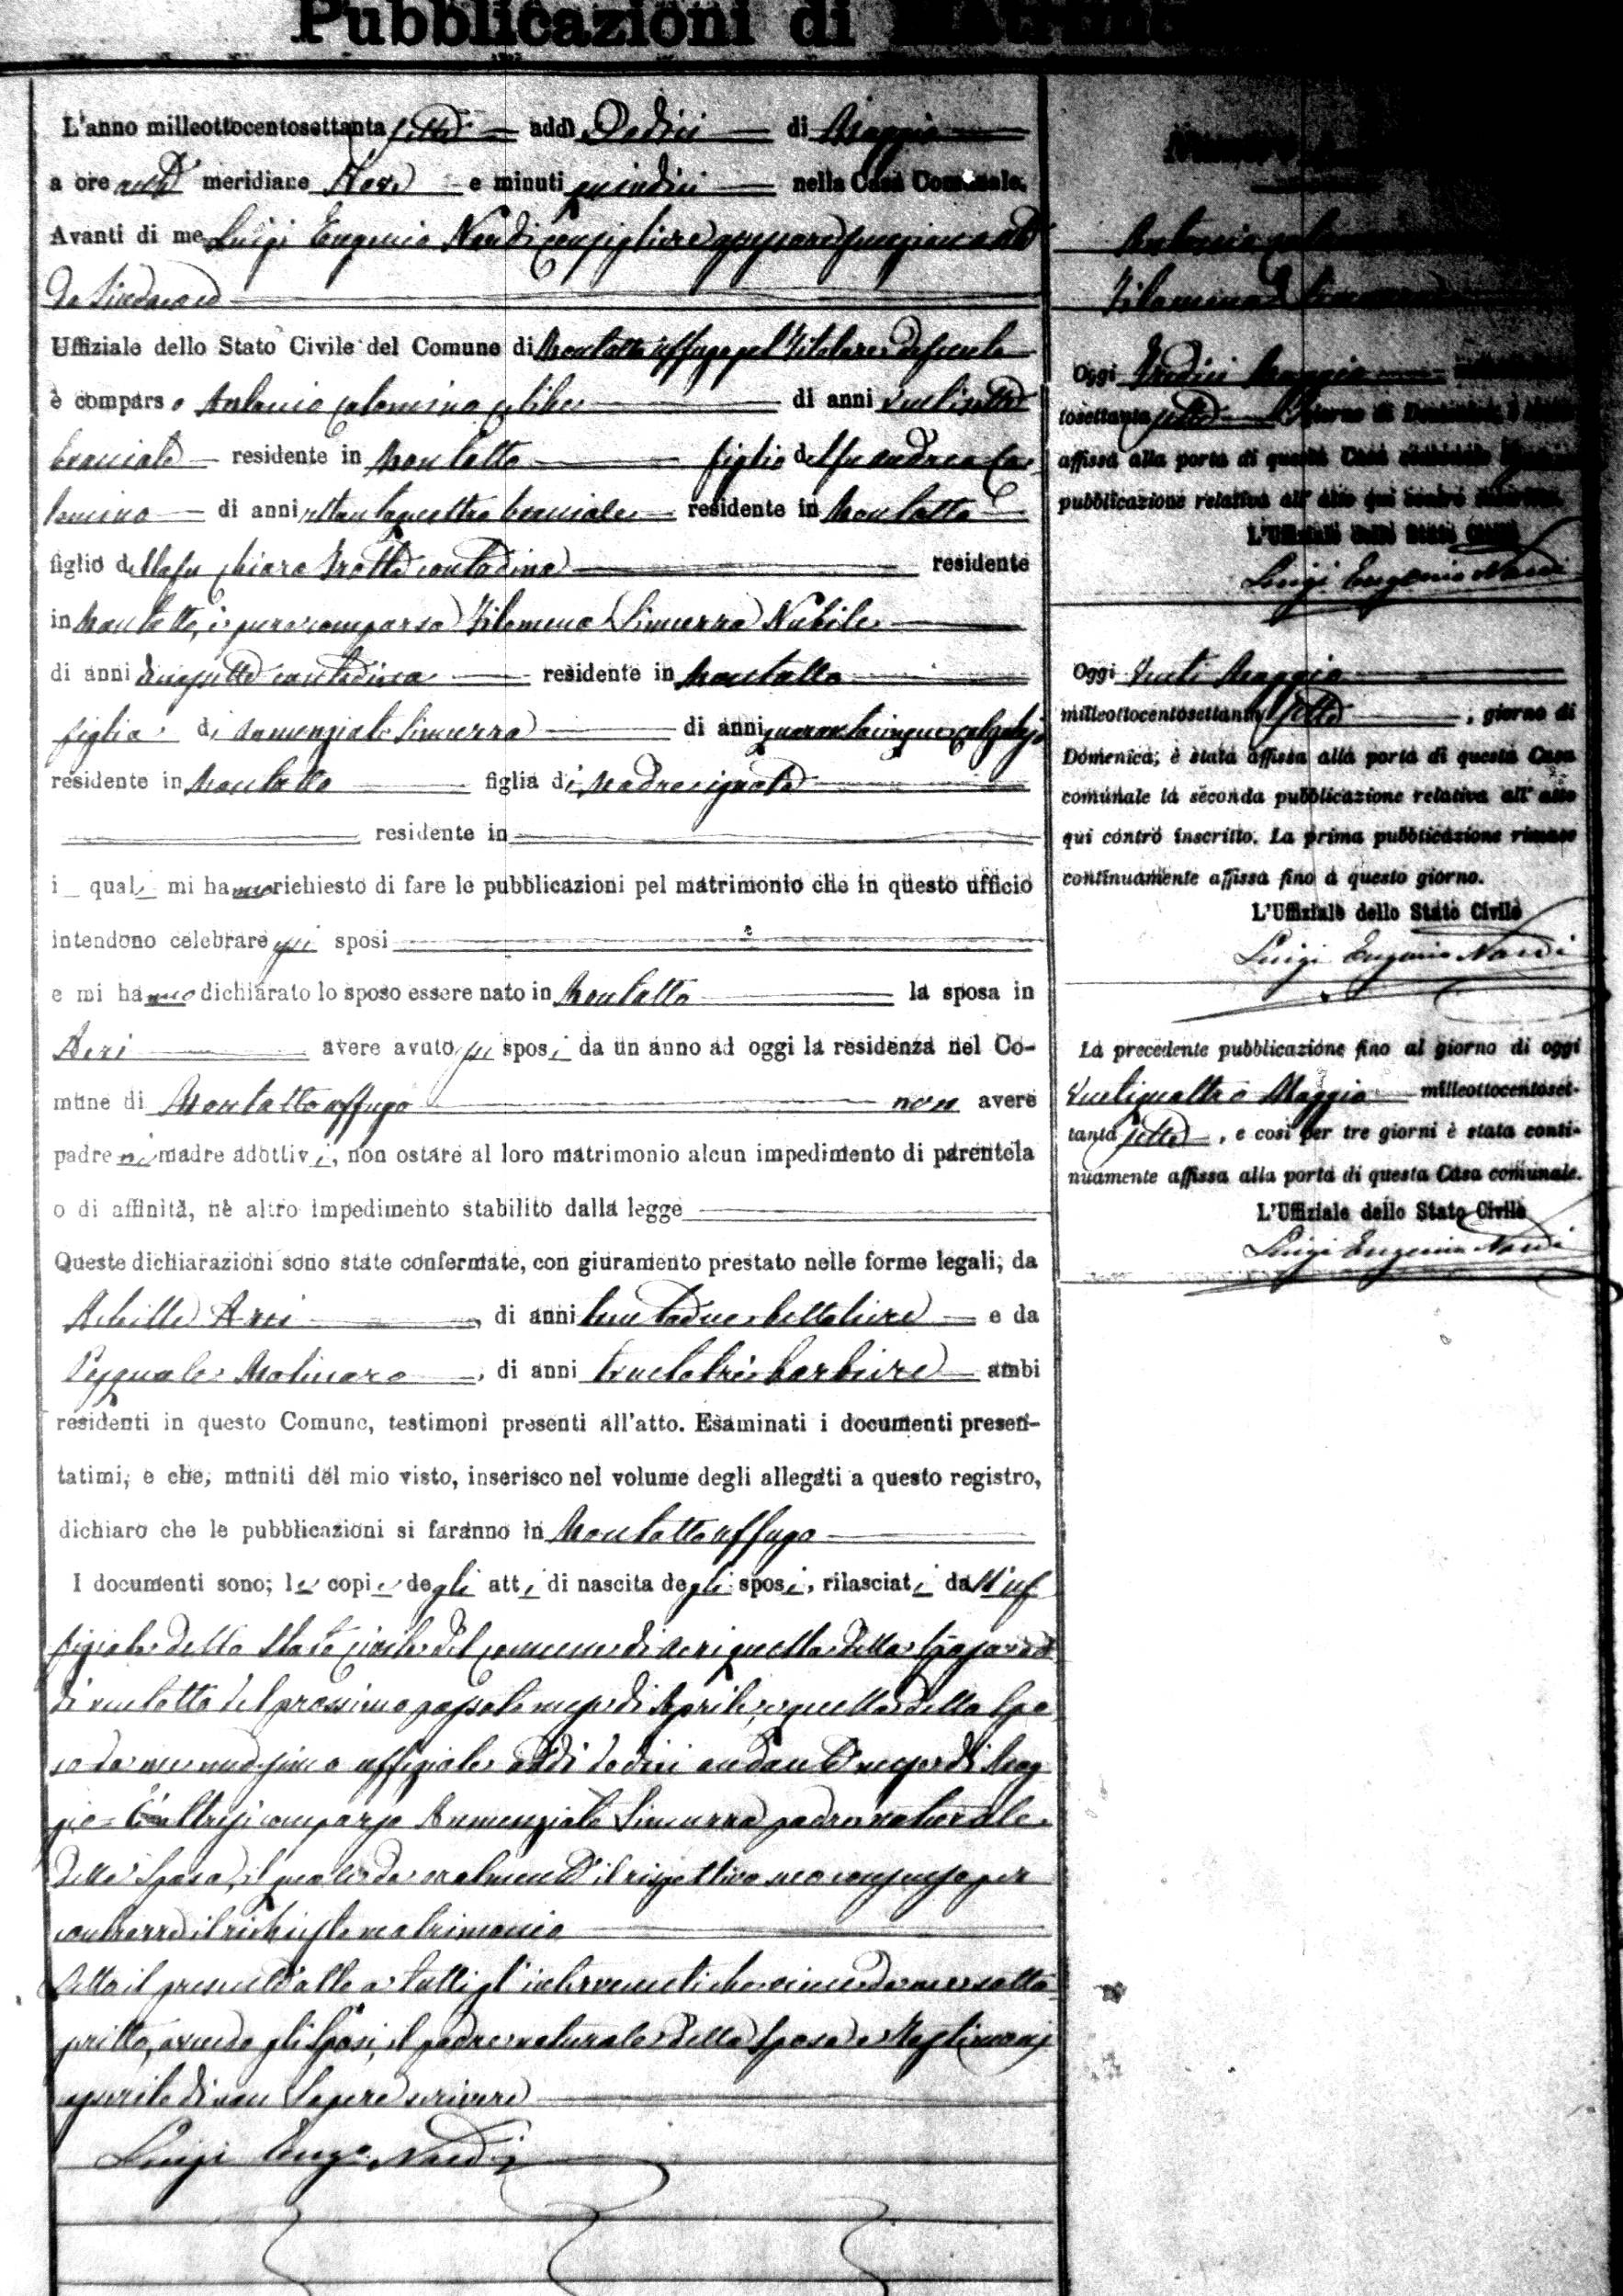 Pubblicazioni di
L'anno milleottocentosettanta sette addì Dodici di Maggio
a ore anti meridiane Nove e minuti quindici nella Casa Comunale.
Avanti di me Luigi Eugenio Nardi Consigliere funzionante
da Sindaco
Uffiziale dello Stato Civile del Comune di Montalto Uffugo pel titolare
è comparso Antonio Colomino celibe di anni ventisette
bracciale residente in Montalto figlio del fu Andrea Co
lomino di anni ottantaquattro bracciale residente in Montalto
figlio della fu Chiara Trotta contadina residente
in Montalto, è pure comparsa Filomena Simurra Nubile
di anni diciassette contadina residente in Montalto
figlia di Annunziato Simurra di anni quarantacinque calzolajo
residente in Montalto figlia di Madre ignota
residente in
i quali mi hanno richiesto di fare le pubblicazioni pel matrimonio che in questo ufficio
intendono celebrare gli sposi
e mi hanno dichiarato lo sposo essere nato in Montalto la sposa in
Acri avere avuto gli sposi da un anno ad oggi la residenza nel Co-
mune di Montalto Uffugo non avere
padre nè madre adottivi, non ostare al loro matrimonio alcun impedimento di parentela
o di affinità, nè altro impedimento stabilito dalla legge
Queste dichiarazioni sono state confermate, con giuramento prestato nelle forme legali, da
Achille di anni trentadue bettoliere e da
Pasquale Molinaro, di anni trentatrè barbiere ambi
residenti in questo Comune, testimoni presenti all'atto. Esaminati i documenti presen-
tatimi, e che, muniti del mio visto, inserisco nel volume degli allegati a questo registro,
dichiaro che le pubblicazioni si faranno in Montalto Uffugo
I documenti sono; le copie degli atti di nascita degli sposi, rilasciati dall'uf
fiziale dello Stato Civile del Comune di Acri quella della Sposa
ventotto del prossimo passato mese di Aprile, e quella dello Spo
so da me medesimo uffiziale addì dodici andante mese di Mag
gio = È altresì comparso Annunziato Simurra padre naturale
della Sposa, il quale dà oralmente il rispettivo suo consenso per
contrarre il richiesto matrimonio
Letto il presente atto a tutti gl'intervenuti che viene da me sotto
scritto, avendo gli Sposi, il padre naturale della Sposa e testimonj
asserito di non Sapere scrivere
Luigi Eugo. Nardi
Antonio Colomino
Filomena Simurra
Oggi Tredici Maggio
tosettanta sette giorno di Domenica, è
affissa alla porta di questa Casa comunale
pubblicazione relativa all'atto qui contro inscritto.
L'Uffiziale dello Stato Civile
Luigi Eugenio Nardi
Oggi Venti Maggio
milleottocentosettanta sette, giorno di
Domenica, è stata affissa alla porta di questa Casa
comunale la seconda pubblicazione relativa all'atto
qui contro inscritto. La prima pubblicazione rimase
continuamente affissa fino a questo giorno.
L'Uffiziale dello Stato Civile
Luigi Eugenio Nardi
La precedente pubblicazione fino al giorno di oggi
Ventiquattro Maggio milleottocentoset-
tanta sette, e così per tre giorni è stata conti-
nuamente affissa alla porta di questa Casa comunale.
L'Uffiziale dello Stato Civile
Luigi Eugenio Nardi